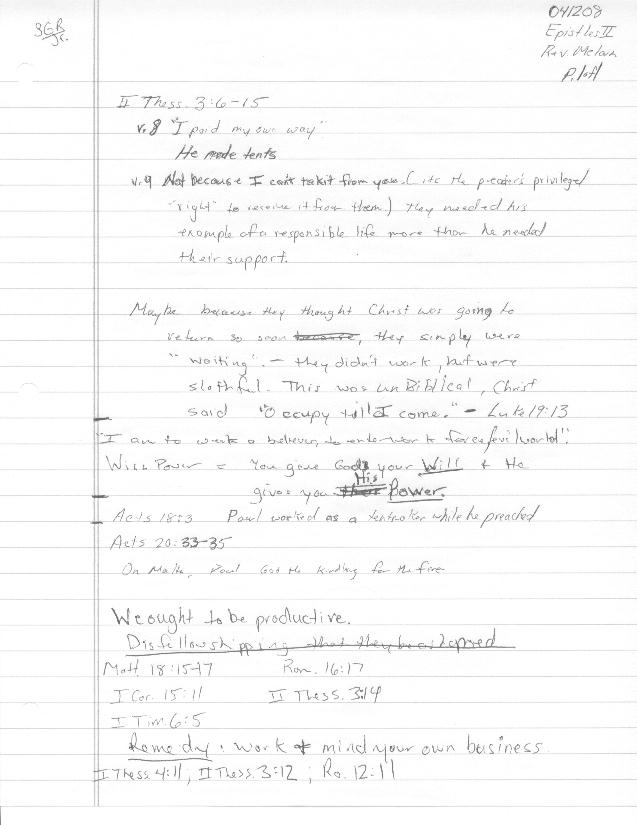 SGR
Jr.
041208
Epistles II
Rev. McLain
P. 1 of 1
II Thess. 3:6-15
v.8 "I paid my own way"
He made tents
v.9 Not because I can't take it from you. (it's the preacher's privileged
"right" to receive it from them.) They needed his
example of a responsible life more than he needed
their support.
Maybe because they thought Christ was going to
return so soon because, they simply were
"waiting". - they didn't work, but were
slothful. This was unBiblical, Christ
said "Occupy till I come." - Luke 19:13
"I am to work a believer, to evil world".
Will Power = You give God your Will & He
gives you His Power.
Acts 18:3 Paul worked as a tentmaker while he preached
Acts 20:33-35
On Malta, Paul Got the kindling for the fire
We ought to be productive.
Disfellowshipping that they be ashamed
Matt. 18:15-17 Rom. 16:17
I Cor. 15:11 II Thess. 3:14
I Tim. 6:5
Remedy: work & mind your own business.
I Thess. 4:11; II Thess. 3:12; Ro. 12:11